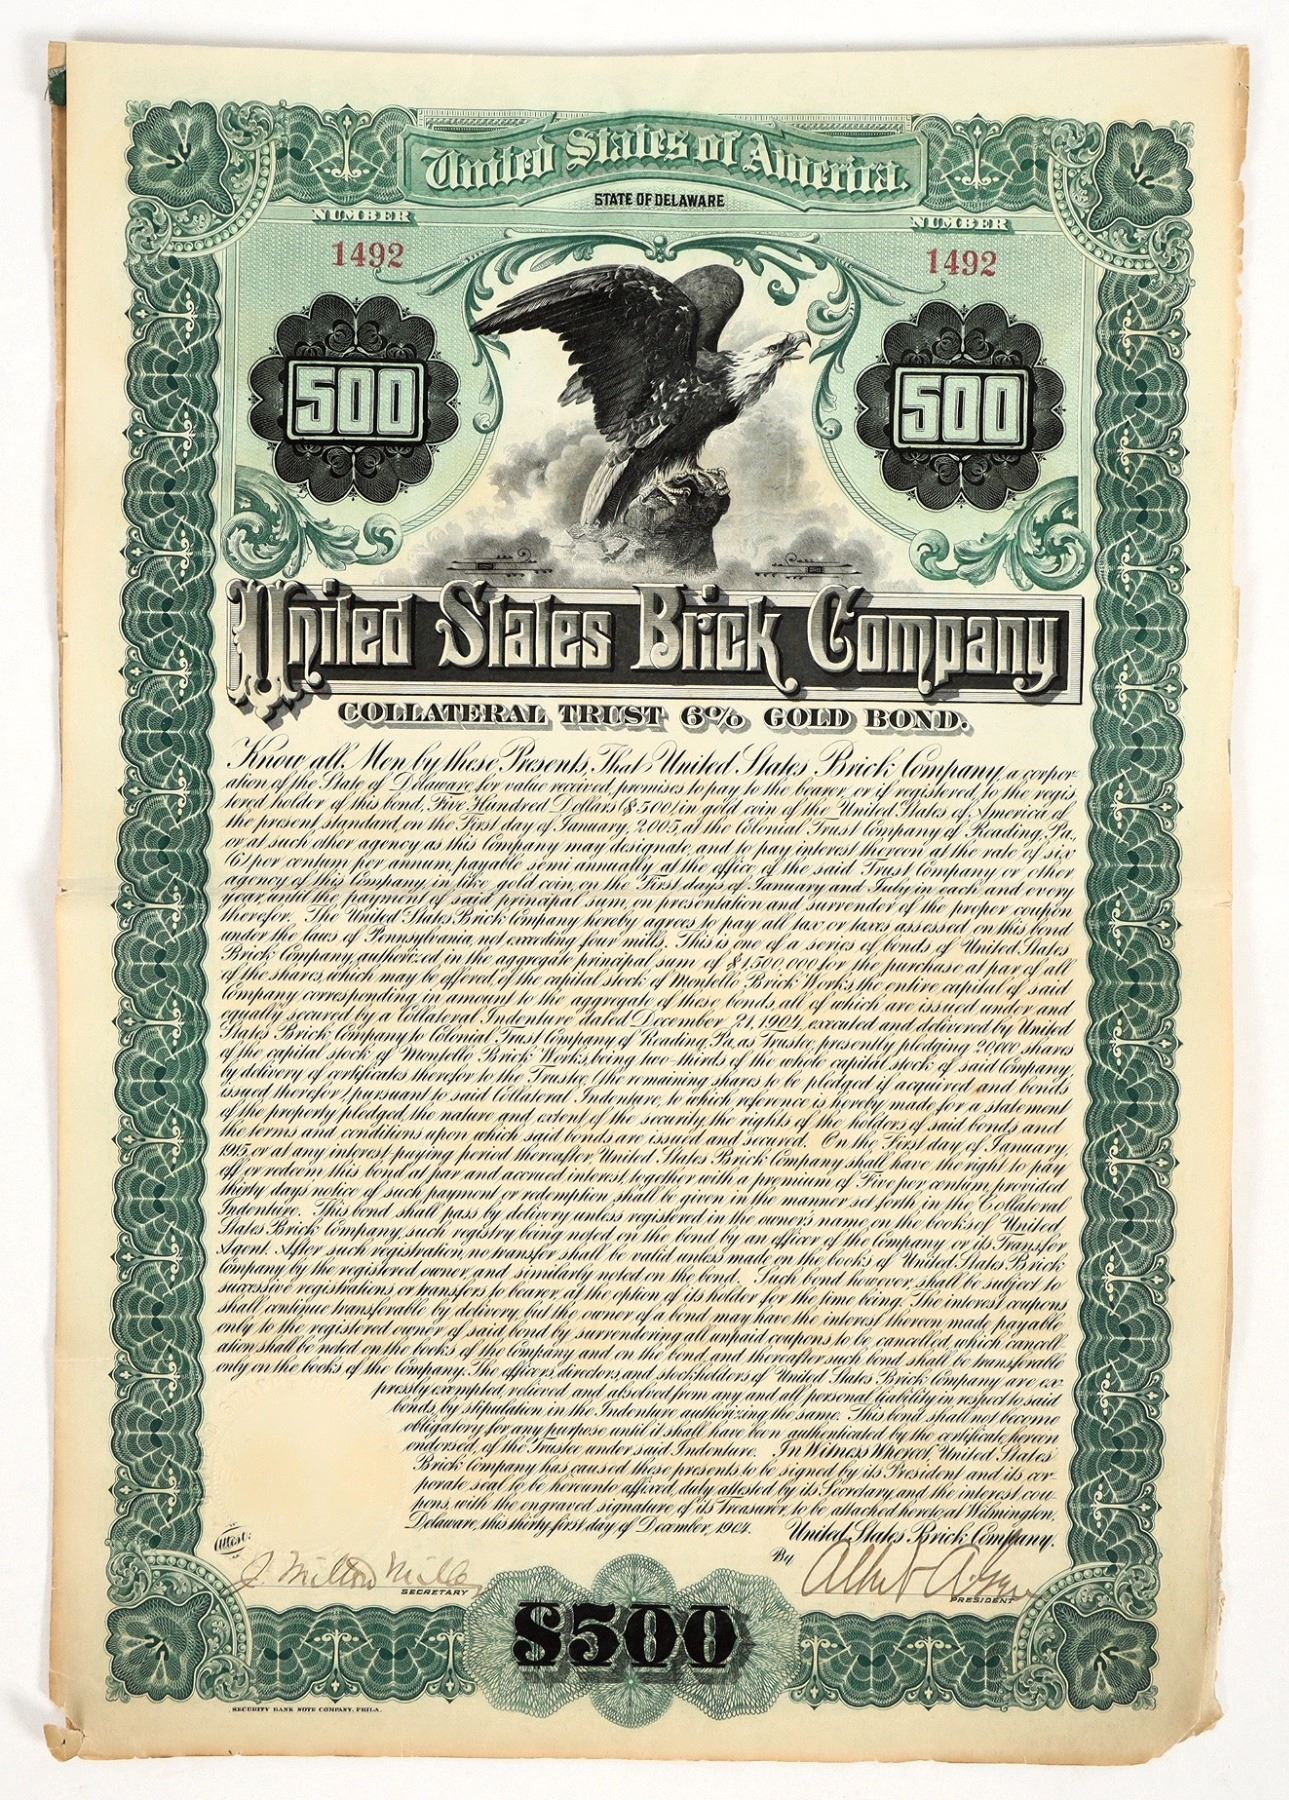 United States of America.
STATE OF DELAWARE
NUMBER NUMBER
1492 1492
500 500
United States Brick Company
COLLATERAL TRUST 6% GOLD BOND.
Know all Men by these Presents, That United States Brick Company, a corpor-
ation of the State of Delaware, for value received, promises to pay to the bearer, or if registered, to the regis
tered holder of this bond, Five Hundred Dollars ($500) in gold coin of the United States of America of
the present standard, on the First day of January, 2005, at the Colonial Trust Company of Reading, Pa.,
or at such other agency as this Company may designate, and to pay interest thereon at the rate of six
(6) per centum per annum, payable semi annually, at the office of the said Trust Company or other
agency of this Company, in like gold coin, on the First days of January and July in each and every
year, until the payment of said principal sum, on presentation and surrender of the proper coupon
therefor. The United States Brick Company hereby agrees to pay all tax or taxes assessed on this bond
under the laws of Pennsylvania, not exceeding four mills. This is one of a series of bonds of United States
Brick Company, authorized, in the aggregate principal sum of $1,500,000 for the purchase at par of all
of the shares, which may be offered, of the capital stock of Montello Brick Works, the entire capital of said
Company corresponding in amount to the aggregate of these bonds, all of which are issued under and
equally secured by a Collateral Indenture dated December 21, 1904, executed and delivered by United
States Brick Company to Colonial Trust Company of Reading, Pa., as Trustee, presently pledging 20,000 shares
of the capital stock of Montello Brick Works, being two-thirds of the whole capital stock of said Company,
by delivery of certificates therefor to the Trustee, (the remaining shares to be pledged if acquired and bonds
issued therefor), pursuant to said Collateral Indenture, to which reference is hereby made for a statement
of the property pledged, the nature and extent of the security, the rights of the holders of said bonds and
the terms and conditions upon which said bonds are issued and secured. On the First day of January,
1915, or at any interest paying period thereafter, United States Brick Company shall have the right to pay
off or redeem this bond at par and accrued interest, together with a premium of Five per centum, provided
thirty days notice of such payment or redemption shall be given in the manner set forth in the Collateral
Indenture. This bond shall pass by delivery unless registered in the owner's name, on the books of United
States Brick Company, such registry being noted on the bond by an officer of the Company or its Transfer
Agent. After such registration, no transfer shall be valid unless made on the books of United States Brick
Company by the registered owner, and similarly noted on the bond. Such bond however, shall be subject to
successive registrations or transfers to bearer, at the option of its holder for the time being. The interest coupons
shall continue transferable by delivery, but the owner of a bond may have the interest thereon made payable
only to the registered owner of said bond by surrendering all unpaid coupons, to be cancelled, which cancell-
ation shall be noted on the books of the Company and on the bond, and thereafter such bond shall be transferable
only on the books of the Company. The officers, directors, and stockholders of United States Brick Company, are ex
pressly exempted, relieved and absolved from any and all personal liability in respect to said
bonds, by stipulation in the Indenture authorizing the same. This bond shall not become
obligatory for any purpose until it shall have been authenticated by the certificate, hereon
endorsed, of the Trustee under said Indenture. In Witness Whereof, United States
Brick Company has caused these presents to be signed by its President and its cor-
porate seal to be hereunto affixed, duly attested by its Secretary, and the interest cou-
pons, with the engraved signature of its Treasurer, to be attached hereto, at Wilmington,
Delaware, this thirty first day of December, 1904.
United States Brick Company.
Attest: By
J. Milton Miller
SECRETARY PRESIDENT
$500
SECURITY BANK NOTE COMPANY, PHILA.